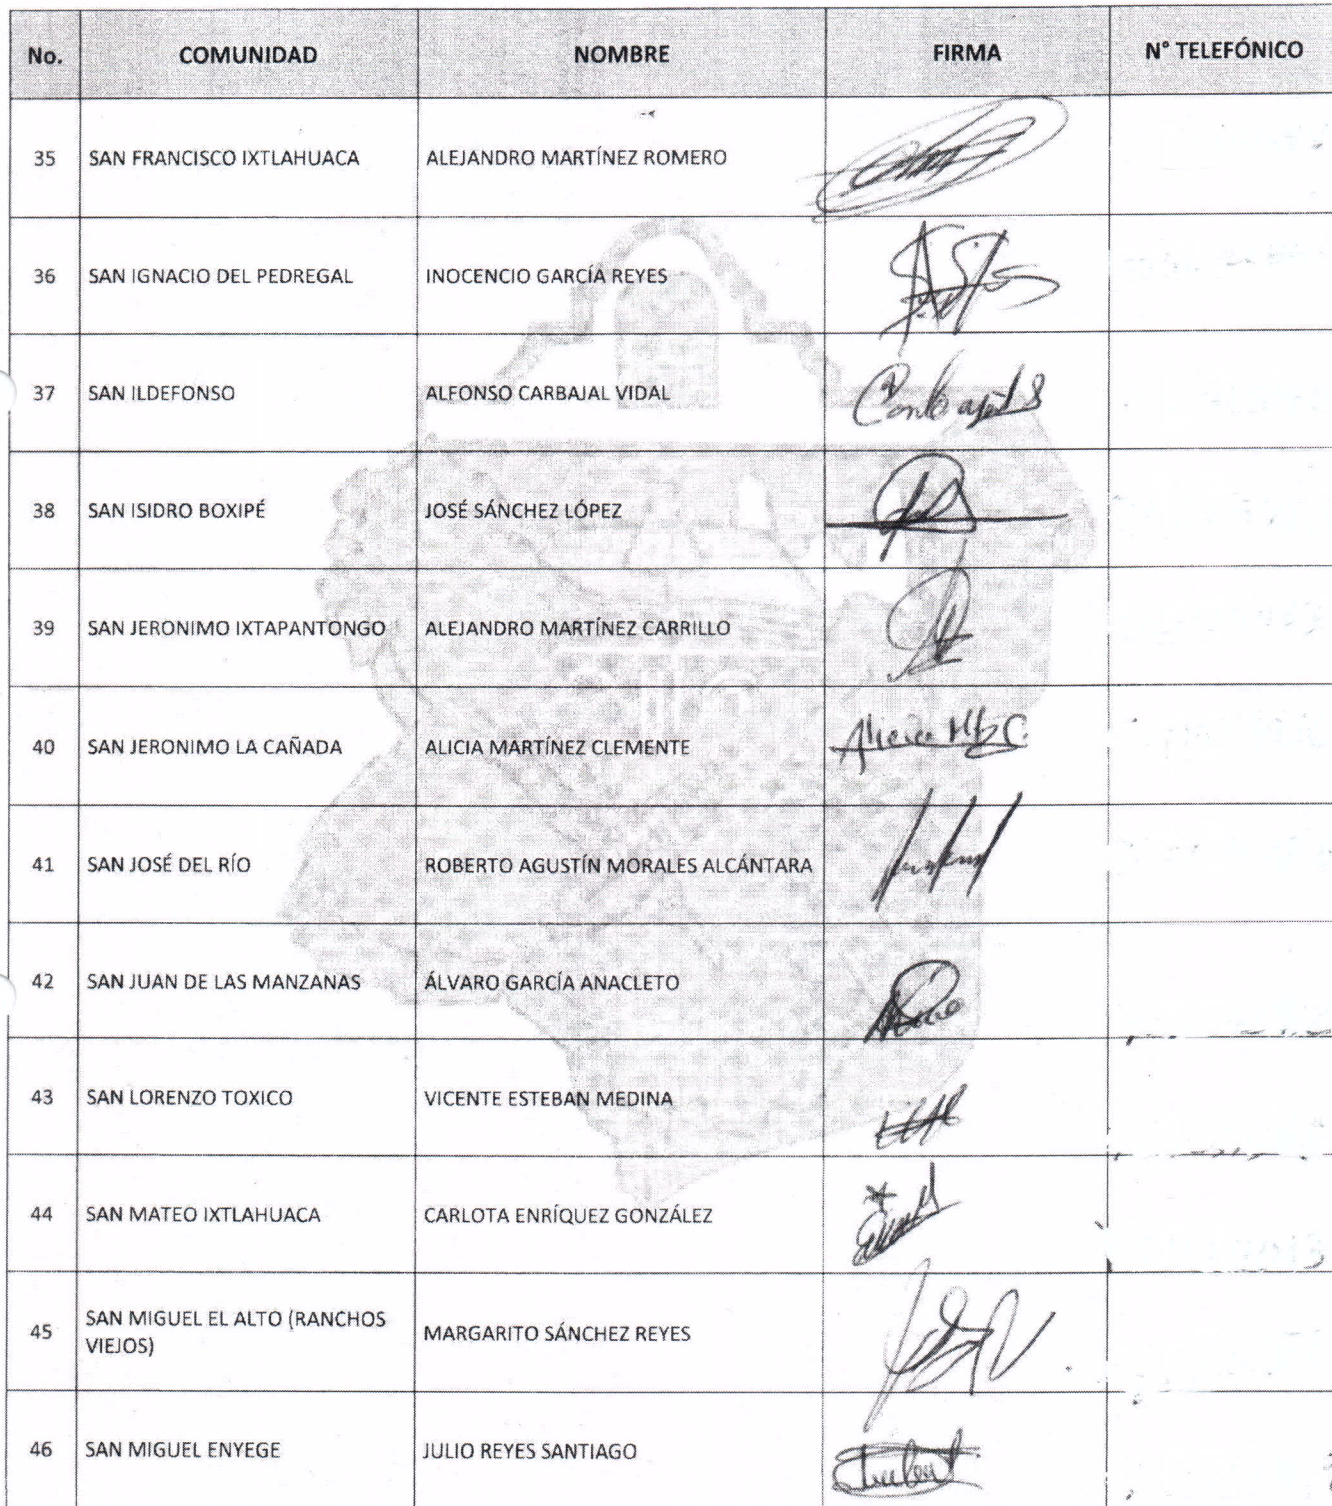 No. COMUNIDAD NOMBRE FIRMA N° TELEFÓNICO
35 SAN FRANCISCO IXTLAHUACA ALEJANDRO MARTÍNEZ ROMERO
36 SAN IGNACIO DEL PEDREGAL INOCENCIO GARCÍA REYES
37 SAN ILDEFONSO ALFONSO CARBAJAL VIDAL
38 SAN ISIDRO BOXIPÉ JOSÉ SÁNCHEZ LÓPEZ
39 SAN JERONIMO IXTAPANTONGO ALEJANDRO MARTÍNEZ CARRILLO
40 SAN JERONIMO LA CAÑADA ALICIA MARTÍNEZ CLEMENTE Alicia Mtz C.
41 SAN JOSÉ DEL RÍO ROBERTO AGUSTÍN MORALES ALCÁNTARA
42 SAN JUAN DE LAS MANZANAS ÁLVARO GARCÍA ANACLETO
43 SAN LORENZO TOXICO VICENTE ESTEBAN MEDINA
44 SAN MATEO IXTLAHUACA CARLOTA ENRÍQUEZ GONZÁLEZ
45 SAN MIGUEL EL ALTO (RANCHOS
VIEJOS) MARGARITO SÁNCHEZ REYES
46 SAN MIGUEL ENYEGE JULIO REYES SANTIAGO